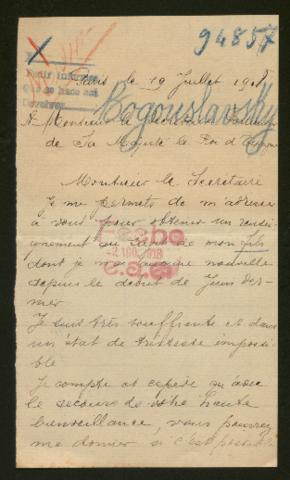 94857
Pedir informes
que se hace así
Devolver
Paris le 19 Juillet 1918
Bogouslavsky
A Monsieur le Secrétaire
de Sa Majesté le Roi d'Espagne
Monsieur le Secrétaire
Je me permets de m'adresser
à vous pour obtenir un rensei
gnement au sujet de mon fils
Fecha
-2 AGO. 1918
dont je n'ai aucune nouvelle
depuis le début de Juin der-
nier
Je suis très souffrante et dans
un état de tristesse impossi
ble
Je compte et espère qu'avec
le secours de votre haute
bienveillance, vous pourrez
me donner si c'est possible